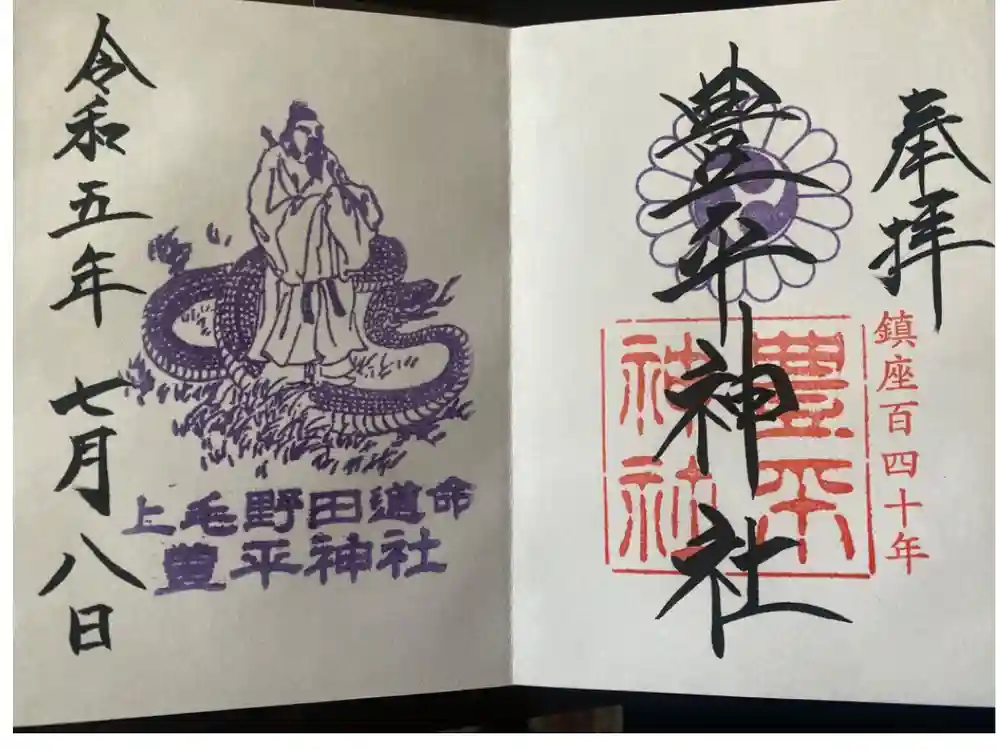 奉拝
鎮座百四十年
豊平神社
豊平
神社
上毛野田道命
豊平神社
令和五年 七月 八日